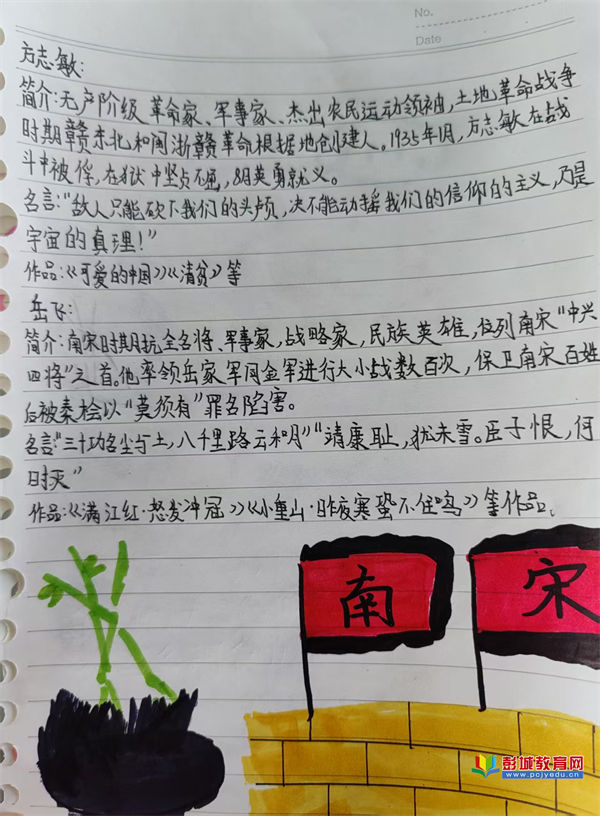 No.
Date
方志敏:
简介:无产阶级革命家、军事家、杰出农民运动领袖,土地革命战争
时期赣东北和闽浙赣革命根据地创建人。1935年1月,方志敏在战
斗中被俘,在狱中坚贞不屈,8月英勇就义。
名言:“敌人只能砍下我们的头颅,决不能动摇我们的信仰的主义,乃是
宇宙的真理!”
作品:《可爱的中国》《清贫》等
岳飞:
简介:南宋时期抗金名将、军事家,战略家,民族英雄,位列南宋“中兴
四将”之首。他率领岳家军同金军进行大小战数百次,保卫南宋百姓
后被秦桧以“莫须有”罪名陷害。
名言:“三十功名尘与土,八千里路云和月”“靖康耻,犹未雪。臣子恨,何
时灭”
作品:《满江红·怒发冲冠》《小重山·昨夜寒蛩不住鸣》等作品。
南 宋
彭城教育网
www.pcjyedu.cn